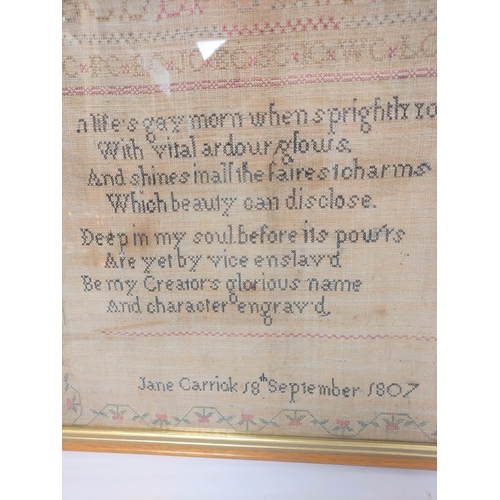 C×PC×B ×JC×EC×GC×JC×WC×LC
n life's gay morn when sprightly yo
With vital ardour glows
And shines in all the fairest charms
Which beauty can disclose.
Deep in my soul before its pow'rs
Are yet by vice enslav'd
Be my Creator's glorious name
And character engrav'd
Jane Carrick 18th September 1807